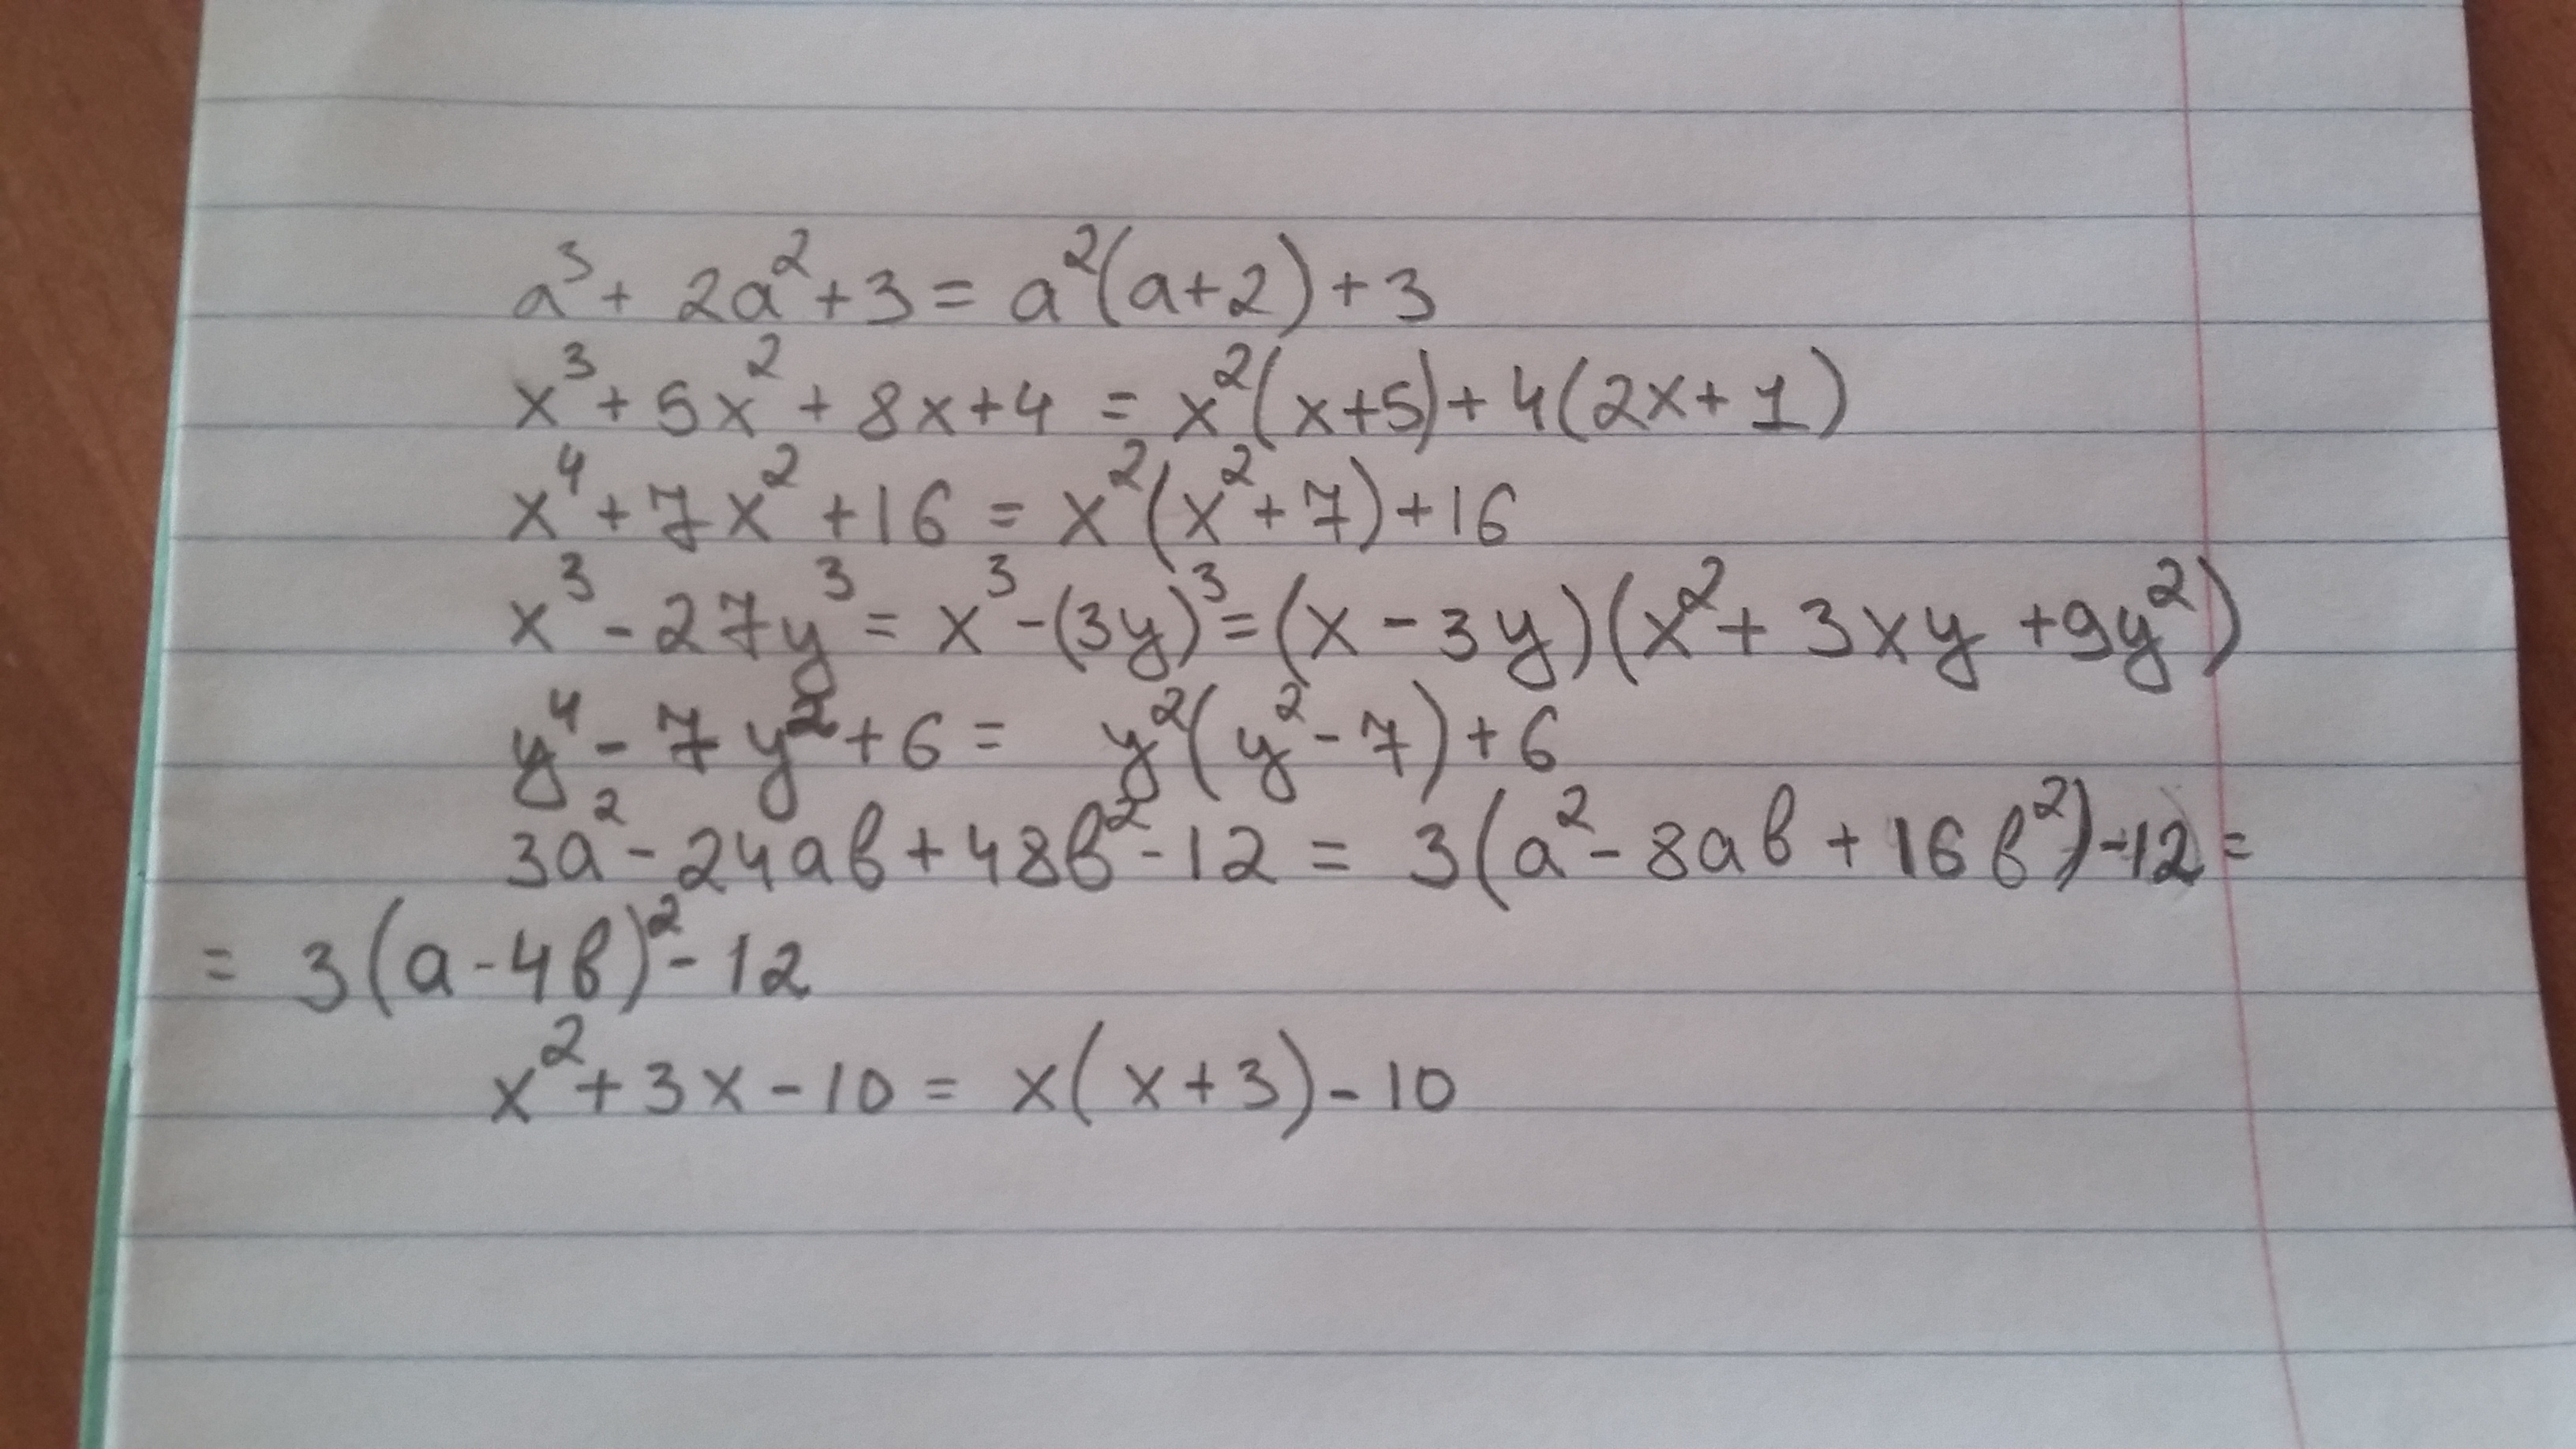 a³ + 2a² + 3 = a²(a+2) + 3
x³ + 5x² + 8x + 4 = x²(x+5) + 4(2x+1)
x⁴ + 7x² + 16 = x²(x²+7) + 16
x³ - 27y³ = x³ - (3y)³ = (x - 3y)(x² + 3xy + 9y²)
y⁴ - 7y² + 6 = y²(y² - 7) + 6
3a² - 24ab + 48b² - 12 = 3(a² - 8ab + 16b²) - 12 =
= 3(a - 4b)² - 12
x² + 3x - 10 = x(x+3) - 10